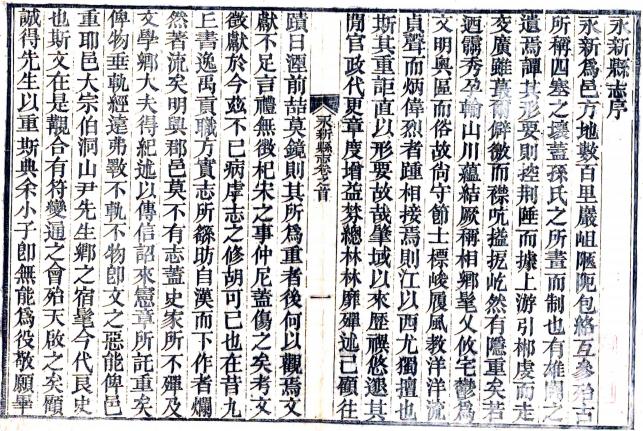 永新縣志序
永新為邑方地數百里巖岨陿阨包絡互參殆古
所稱四塞之壤蓋孫氏之所畫而制也有雄閎之
遺焉譚其形要則控荊陲而據上游引郴虔而走
交廣雖蕞爾僻徼而襟吭搤扼屹然有隱重矣若
廼靈秀孕輸山川蘊結厥稱相鄉髦乂攸宅鬱為
文明奧區而俗故尚守節士標峻履風教洋洋流
貞聲而炳偉烈者踵相接焉則江以西尤獨擅也
斯其重詎直以形要故哉肇域以來歷禩悠邈其
間官政代更章度增益棼總林林靡殫述已顧往
永新縣志卷之首
一
蹟日湮前喆莫鏡則其所為重者後何以觀焉文
獻不足言禮無徵杞宋之事仲尼蓋傷之矣考文
徵獻於今茲不已病虖志之修胡可已也在昔九
丘書逸禹貢職方實志所繇助自漢而下作者爛
然著流矣明興郡邑莫不有志蓋史家所不殫及
文學鄉大夫得紀述以傳信詔來憲章所託重矣
俾物垂軌經遠弗斁不軌不物即文之惡能俾邑
重耶邑大宗伯洞山尹先生鄉之宿髦今代良史
也斯文在是觀合有符變通之會殆天啟之矣顧
誠得先生以重斯典余小子即無能為役敬願畢